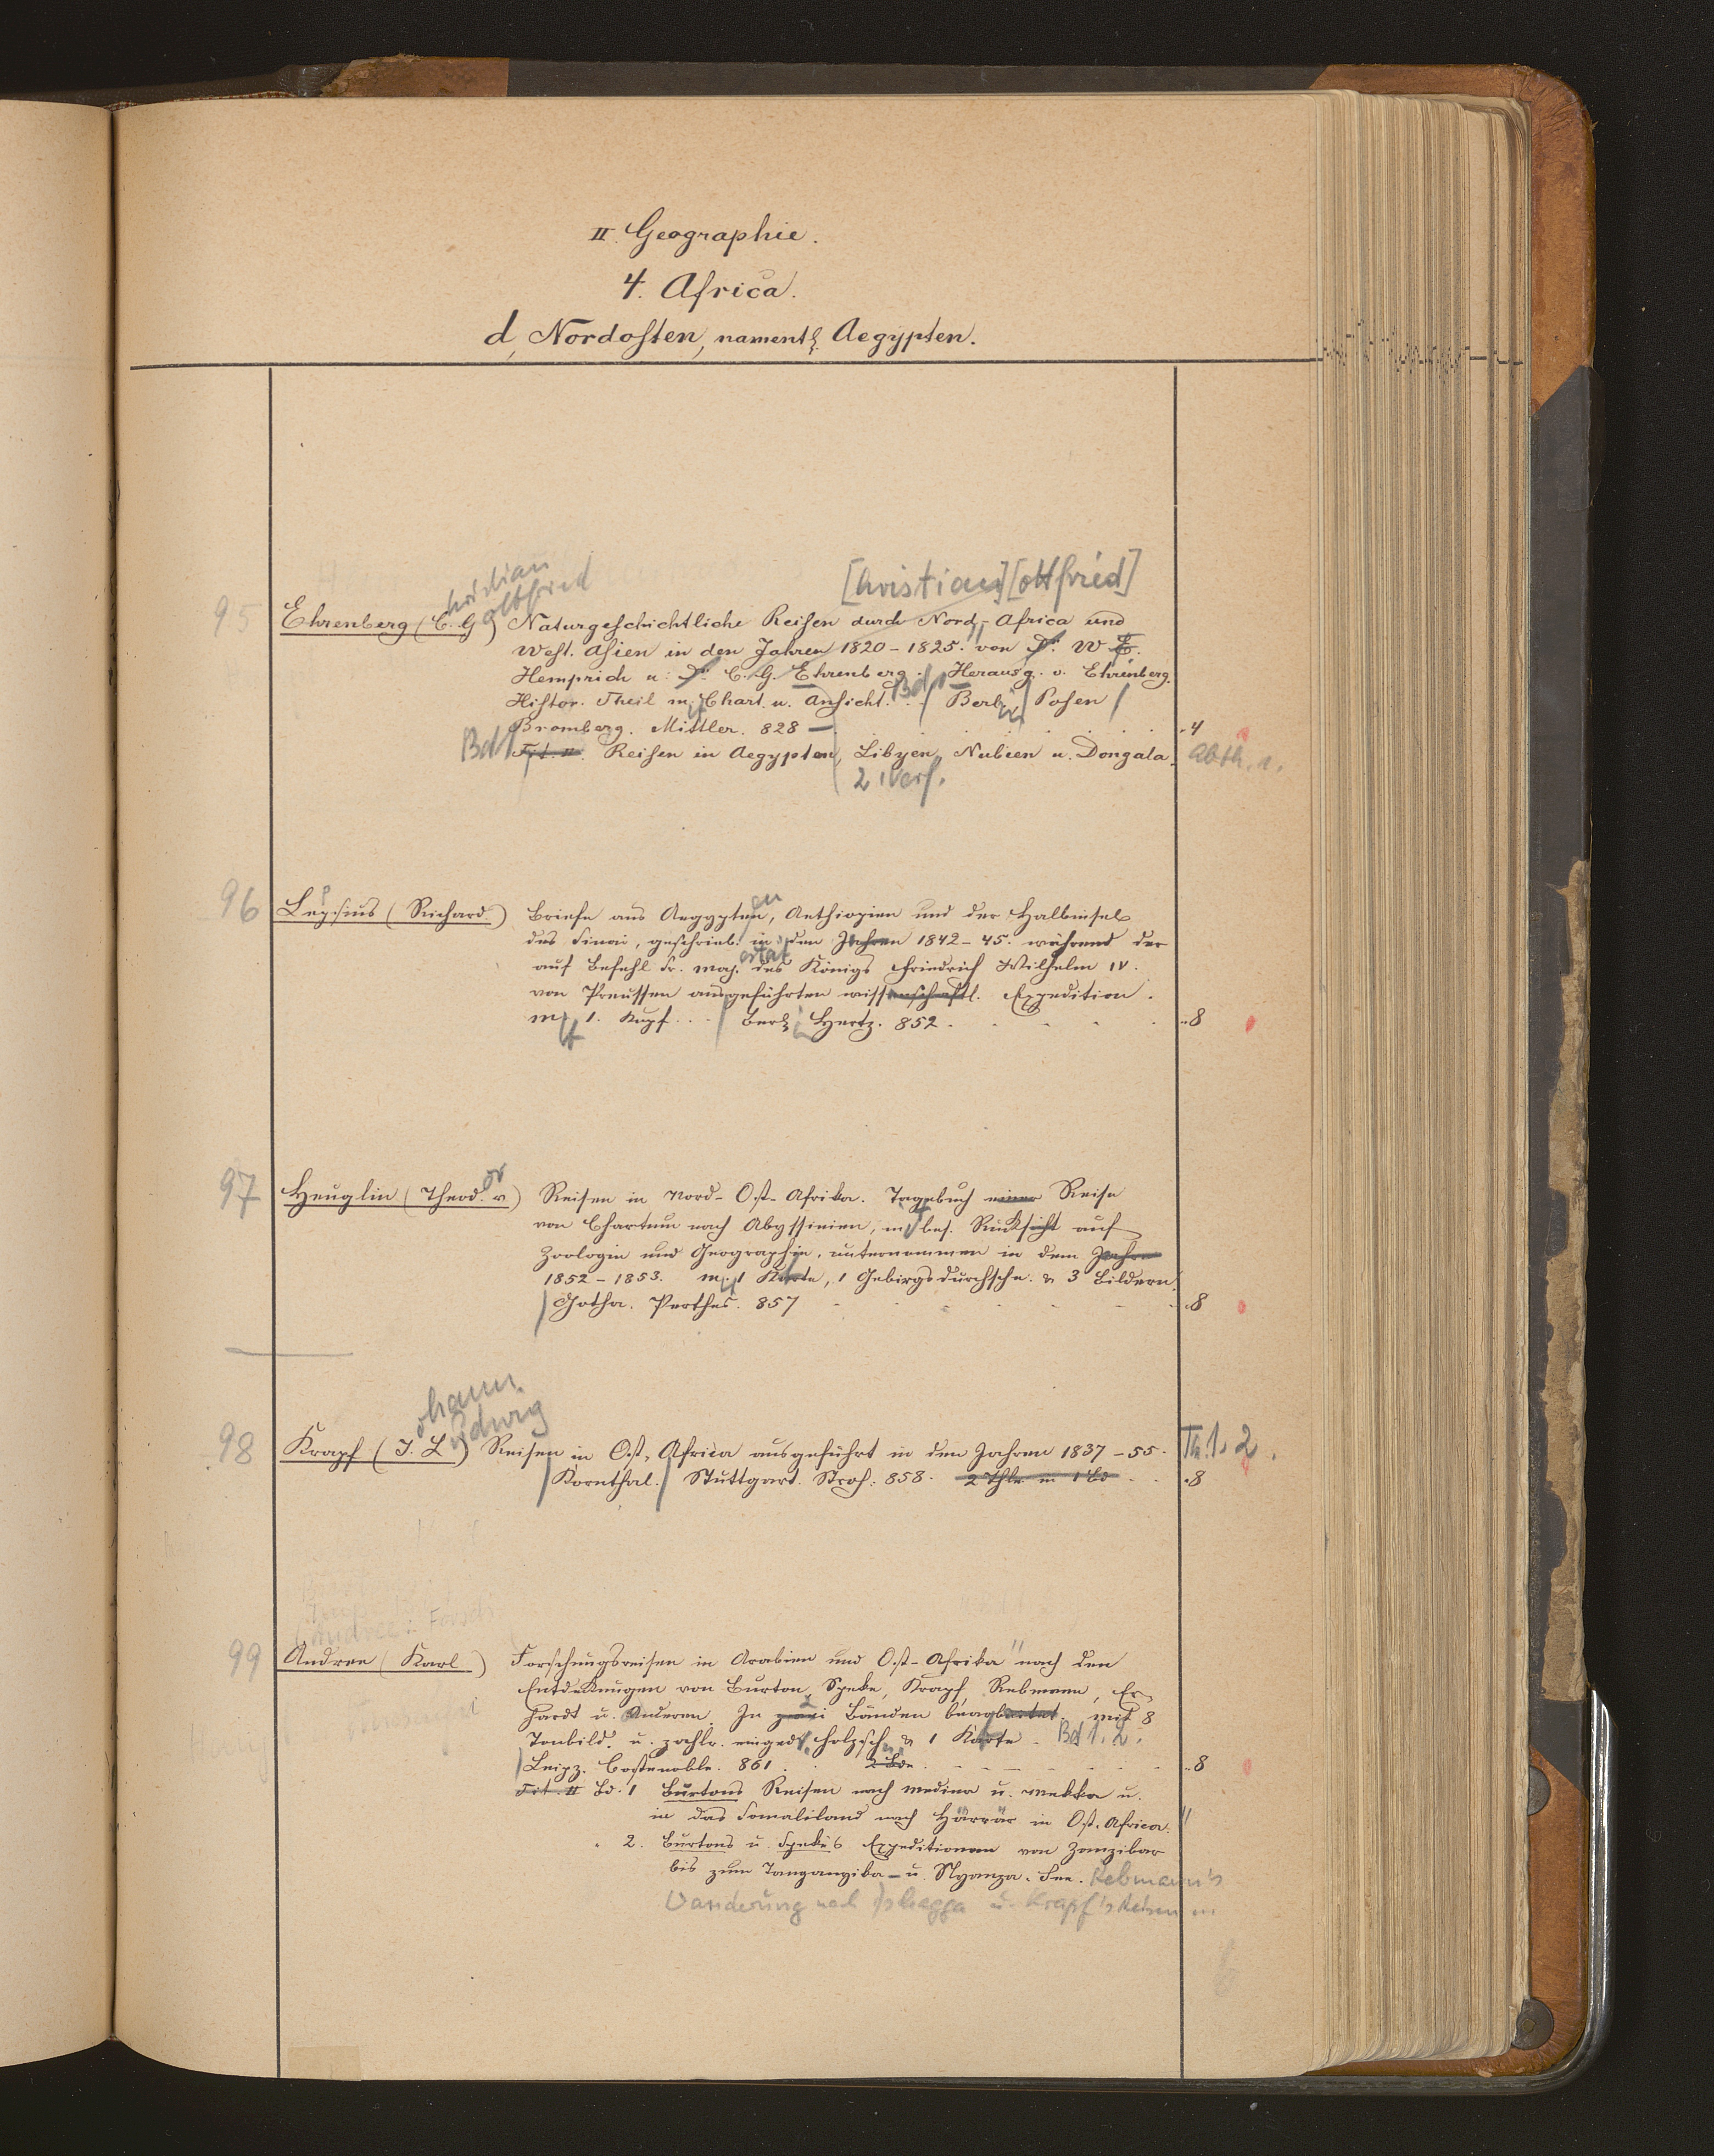 II. Geographie.
4. Africa.
d, Nordosten, namentl. Aegypten.
hristian
ottfried
[hristian] [ottfried]
95 Ehrenberg (C. G.) Naturgeschichtliche Reisen durch Nord-Africa und
West. Asien in den Jahren 1820-1825. von Dr. W. F.
Hemprich u. Dr. C. G. Ehrenberg. Herausg. v. Ehrenberg.
Histor. Theil m. Chart. u. Ansicht. Bd 1 Berlin, Posen
Bromberg. Mittler. 828 — 4
Bd 1 Tit. II. Reisen in Aegypten, Libyen, Nubien u. Dongala. Abth. 1.
2 Verf.
96 Lepsius (Richard) Briefe aus Aegypten, Aethiopien und der Halbinsel
des Sinai, geschrieb. in den Jahren 1842-45. während der
auf Befehl Sr. Maj. estät des Königs Friedrich Wilhelm IV.
von Preussen ausgeführten wissenschaftl. Expedition.
m. 1. Kupf. Berl. Hertz. 852. 8
97 Heuglin (Theod. or v.) Reisen in Nord-Ost-Afrika. Tagebuch einer Reise
von Chartum nach Abyssinien, m. bes. Rücksicht auf
Zoologie und Geographie, unternommen in dem Jahre
1852-1853. m. 1 Karte, 1 Gebirgsdurchschn. & 3 Bildern.
Gotha. Perthes. 857 8
ohann
udwig
98 Krapf (J. L.) Reisen in Ost-Africa ausgeführt in den Jahren 1837-55. Th. 1. 2.
Kornthal. Stuttgart. Stroh. 858. 2 Thle. in 1 Bd 8
99 Andree (Karl) Forschungsreisen in Arabien und Ost-Afrika nach den
Entdekungen von Burton, Speke, Krapf, Rebmann, Er-
hardt u. Anderen. In zwei 2 Bänden bearbeitet. mit 8
Tonbild. u. zahlr. eingedr. Holzschn. & 1 Karte. Bd 1. 2.
Leipz. Costenoble. 861. 2 Bde. 8
Tit. II Bd. 1 Burtons Reisen nach Medina u. Mekka u.
in das Somaliland nach Härrär in Ost-Africa.
" 2. Burtons u. Speke's Expeditionen von Zanzibar
bis zum Tanganyika- u. Nyanza-See. Rebmann's
Wanderung nach Dschagga u. Krapf's Reisen